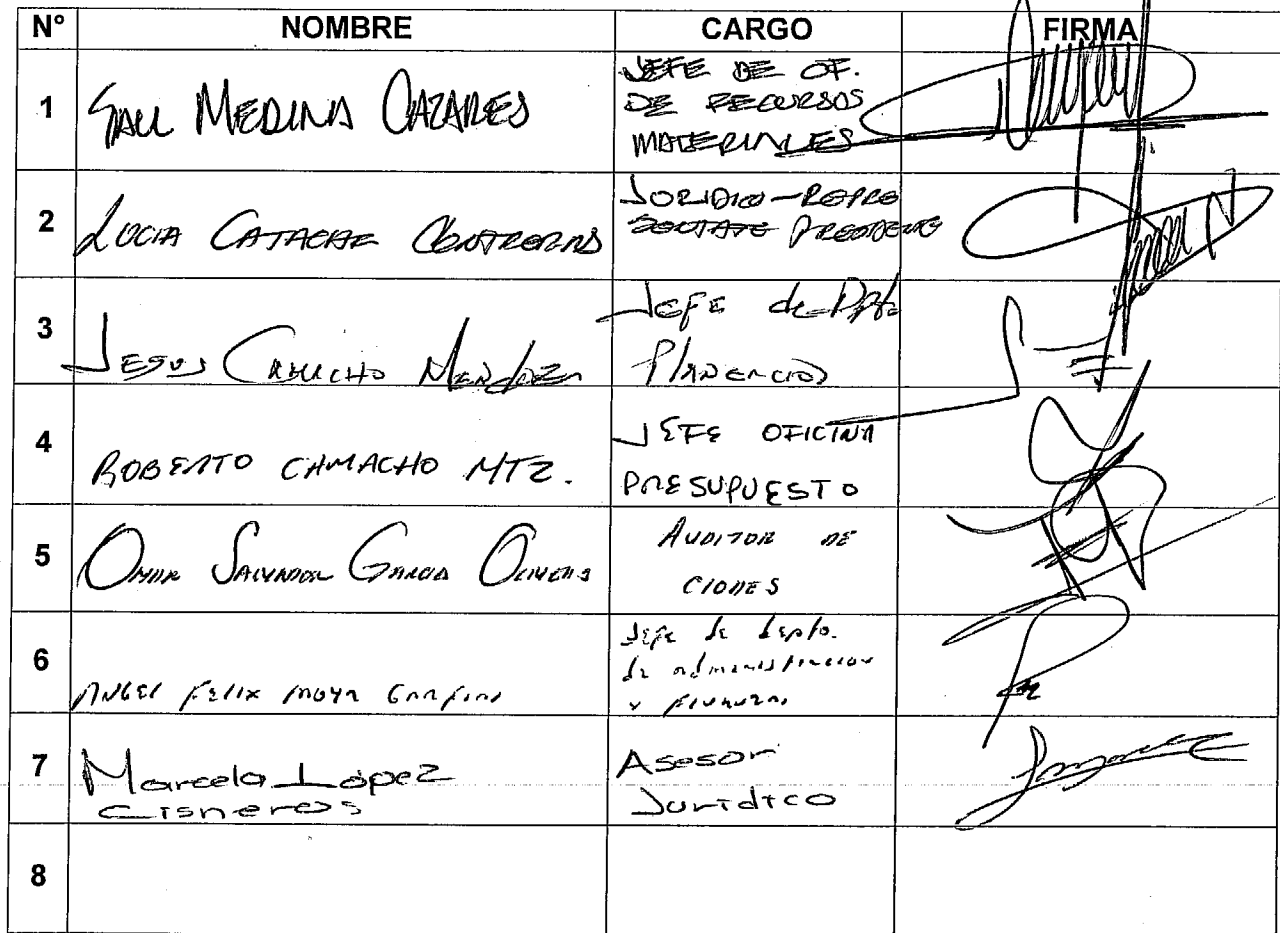 N° NOMBRE CARGO FIRMA
1 SAUL MEDINA CAZARES JEFE DE OF.
DE RECURSOS
MATERIALES
2 LUCIA CONTRERAS JURIDICO-REPRE
3 JESUS CAMACHO MENDOZA Jefe de Dpto
4 ROBERTO CAMACHO MTZ. JEFE OFICINA
PRESUPUESTO
5 OMAR SALVADOR GARCIA OLIVERAS AUDITOR DE
CIONES
6 ANGEL FELIX MOYA Jefe de depto.
de administracion
y finanzas
7 Marcela López Asesor
Cisneros Juridico
8